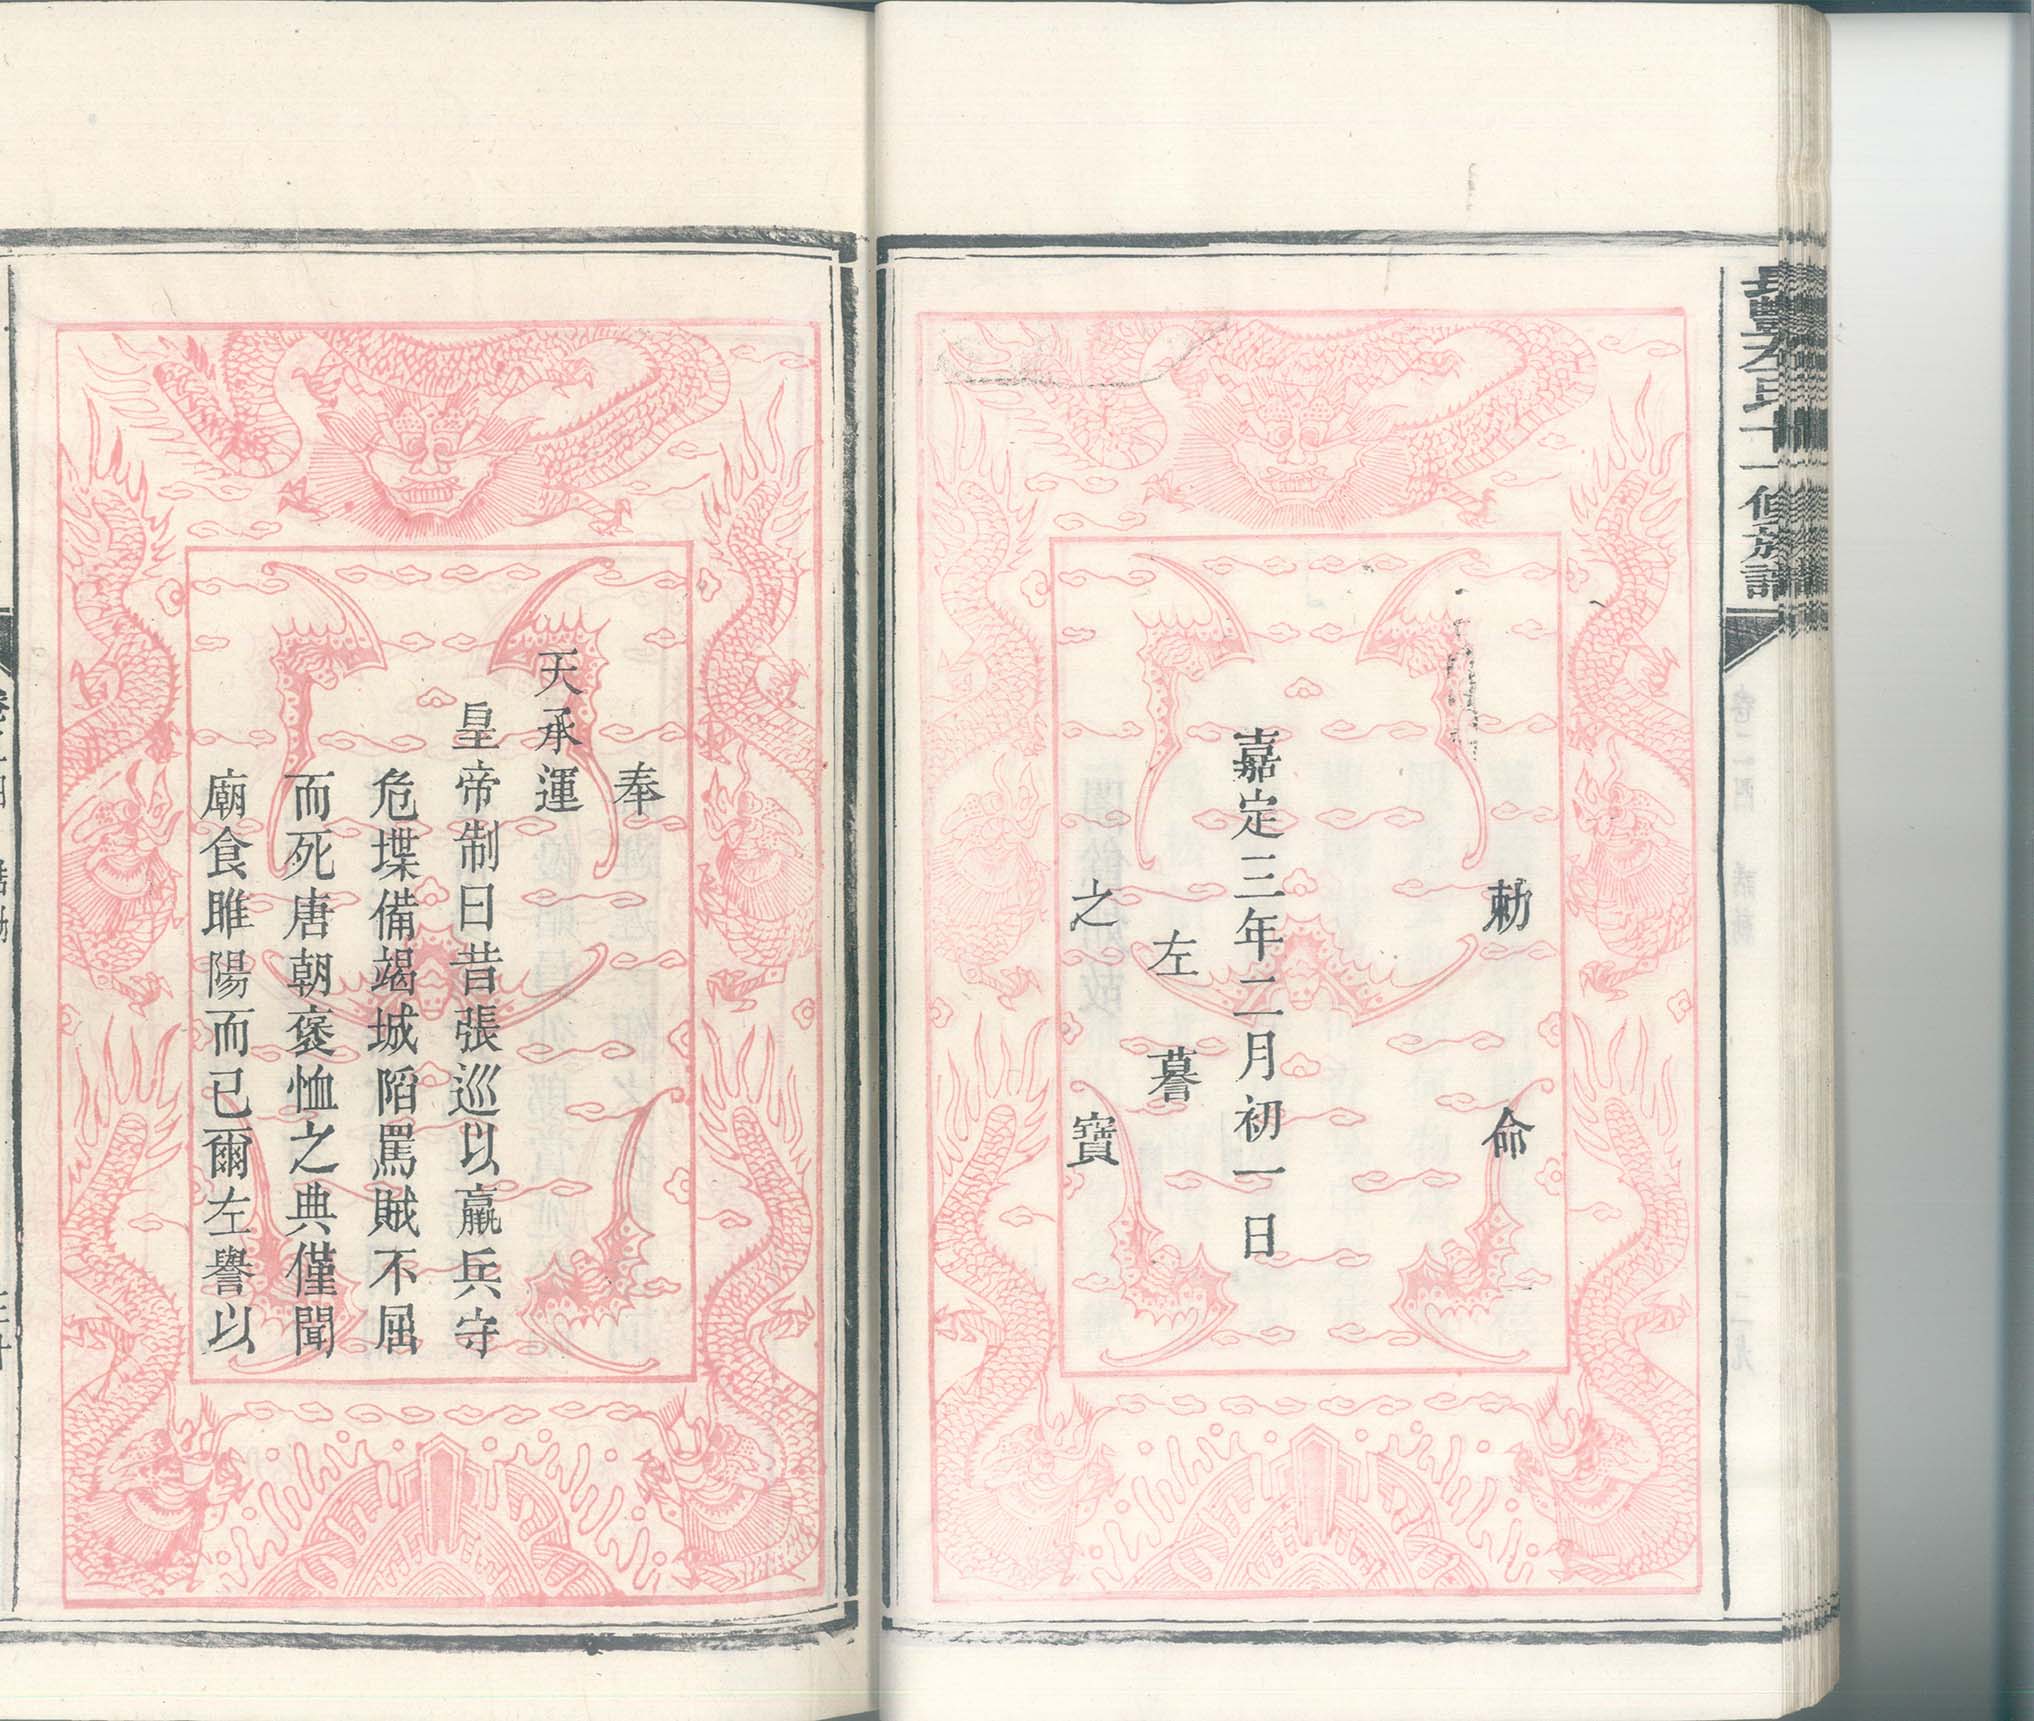 長豐左氏十一修族譜
勅命
嘉定三年二月初一日
左謩
之寶
奉
天承運
皇帝制曰昔張巡以羸兵守
危堞備竭城陷罵賊不屈
而死唐朝褒恤之典僅聞
廟食睢陽而已爾左譽以